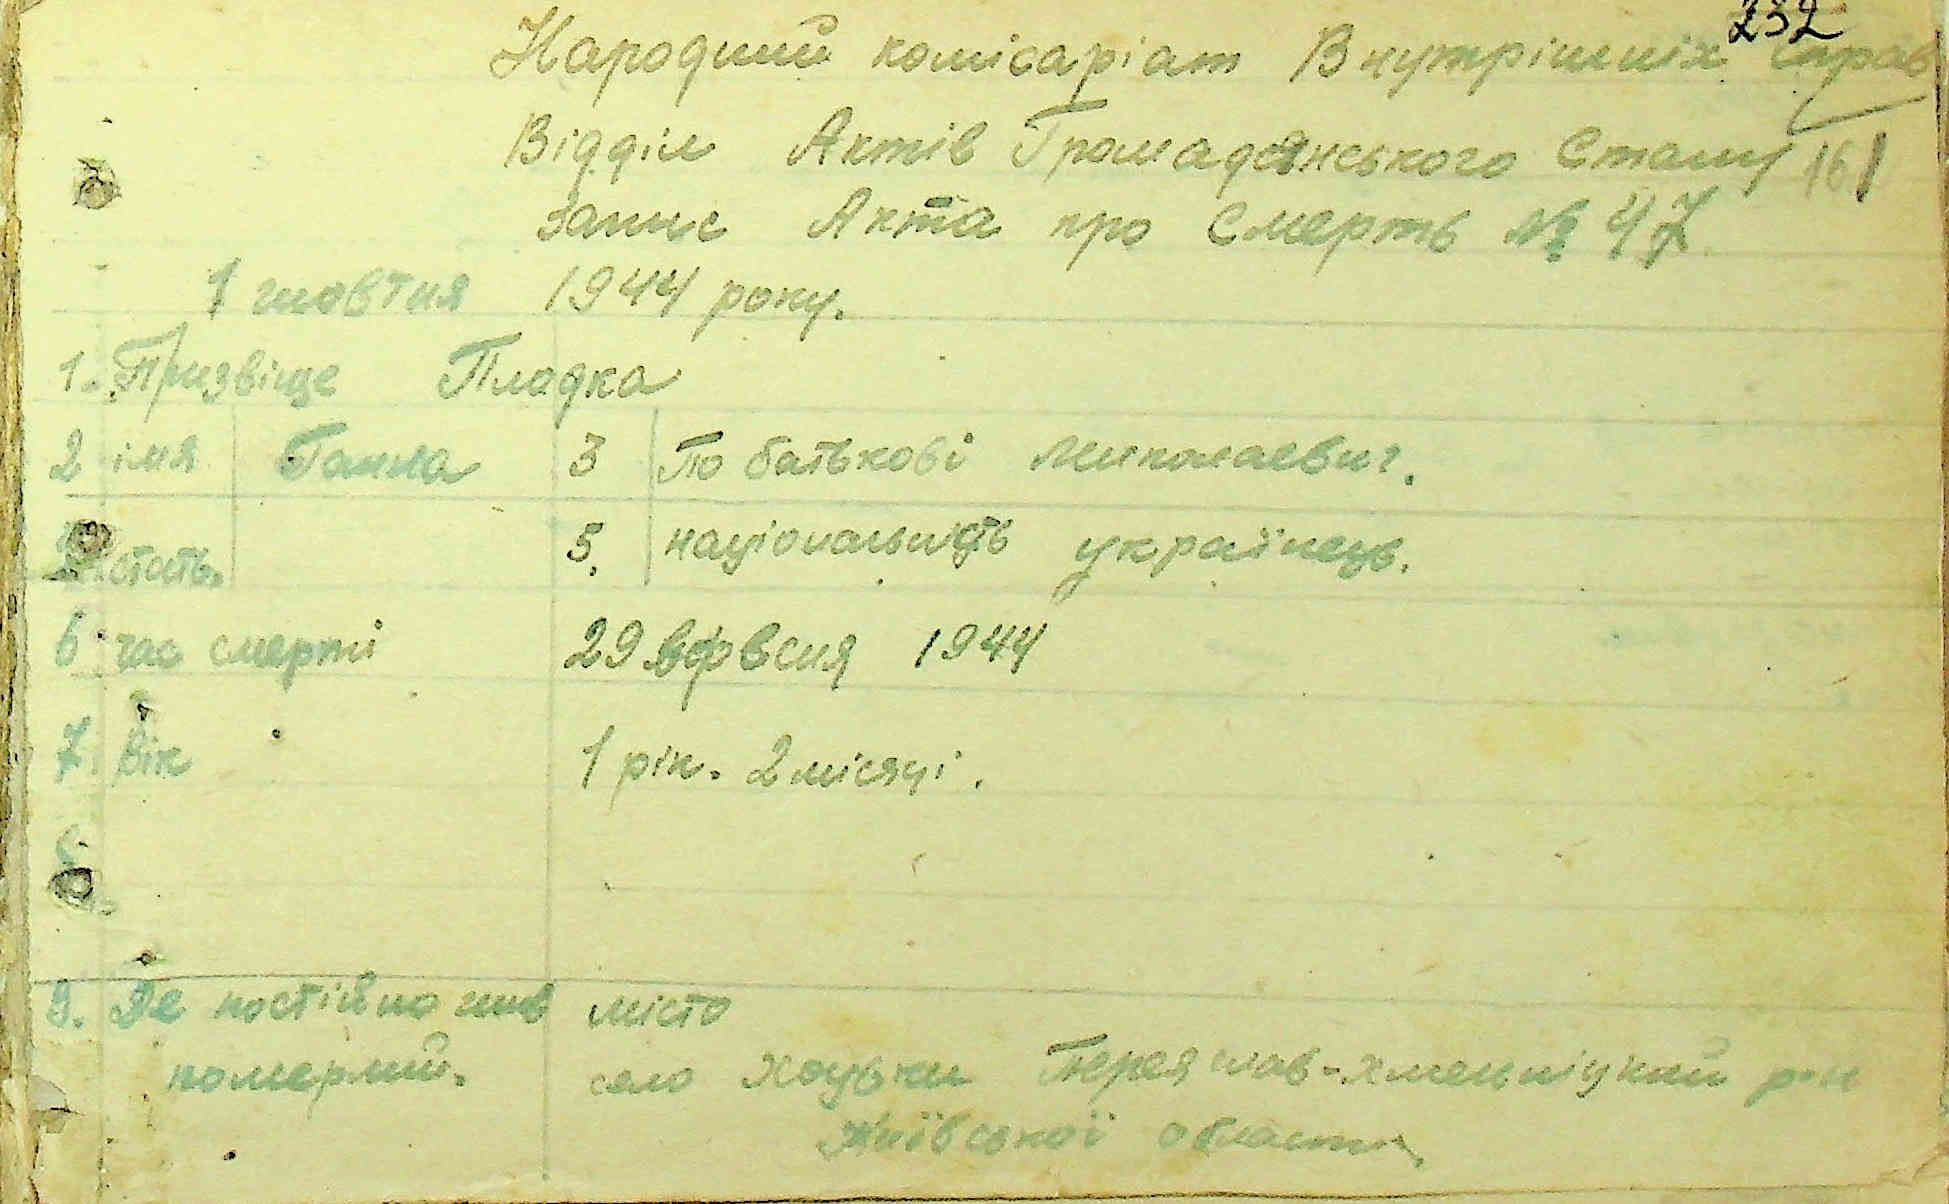 232
Народний комісаріат Внутрішніх справ
Відділ Актів Громадянського Стану 161
запис Акта про Смерть № 47
1 жовтня 1944 року.
1. Призвіще Пладка
2 імя Ганна 3 По батькові Миколаевич.
стать. 5. національність українець.
6 час смерті 29 вервсня 1944
7 вік 1 рік. 2 місяці.
8
9. Де постійно жив місто
померлий. село Хоцьки Переяслав-Хмельніцкий р-н
Київської области